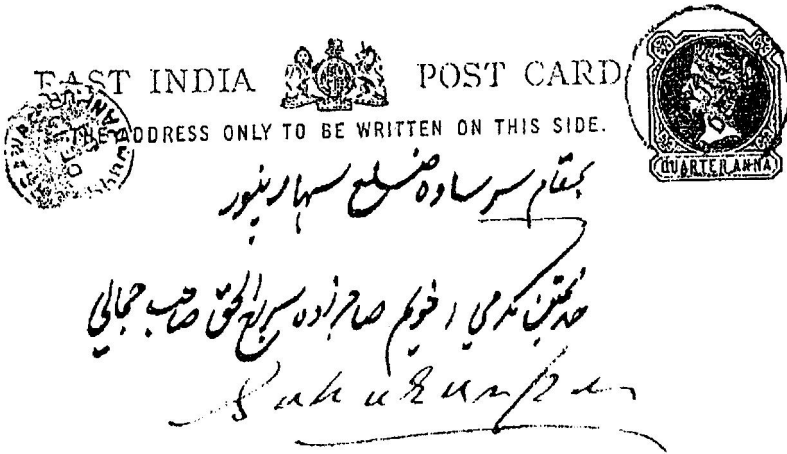 EAST INDIA POST CARD
THE ADDRESS ONLY TO BE WRITTEN ON THIS SIDE.
QUARTER ANNA
بمقام سرساوہ ضلع سہارنپور
بخدمت مکرمی اخویم صاحبزادہ سراج الحق صاحب جمالی
Saharanpur